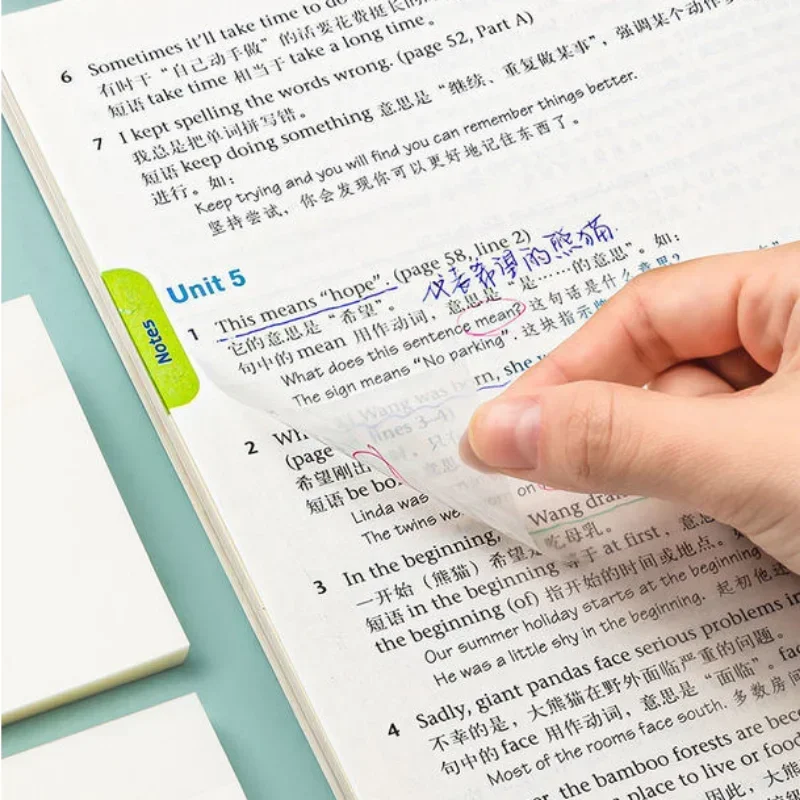 6 Sometimes it'll take time to do
有时干“自己动手做”的话要花费挺长的时间。
短语 take time 相当于 take a long time。
7 I kept spelling the words wrong. (page 52, Part A)
我总是把单词拼写错。
短语 keep doing something 意思是“继续、重复做某事”，强调某个动作
进行。如：
Keep trying and you will find you can remember things better.
坚持尝试，你会发现你可以更好地记住东西了。
Unit 5
Notes
1 This means “hope”. (page 58, line 2)
代表希望的熊猫
它的意思是“希望”。
句中的 mean 用作动词，意思是“是……的意思”。如：
What does this sentence mean? 这句话是什么意思？
The sign means “No parking”. 这块指示
2 Wh Wang was born, she
(page lines 3-4)
希望刚出 时，只
短语 be bo 意思
Linda was on
The twins we
Wang dran
吃母乳。
3 In the beginning,
一开始（熊猫）希望
短语 in the beginning 等于 at first，意
the beginning (of) 指开始的时间或地点。如
Our summer holiday starts at the beginning
He was a little shy in the beginning. 起初他
4 Sadly, giant pandas face serious problems in
不幸的是，大熊猫在野外面临严重的问题。
句中的 face 用作动词，意思是“面临”。fac
Most of the rooms face south. 多数房间
er, the bamboo forests are beco
a place to live or food
因此，大熊